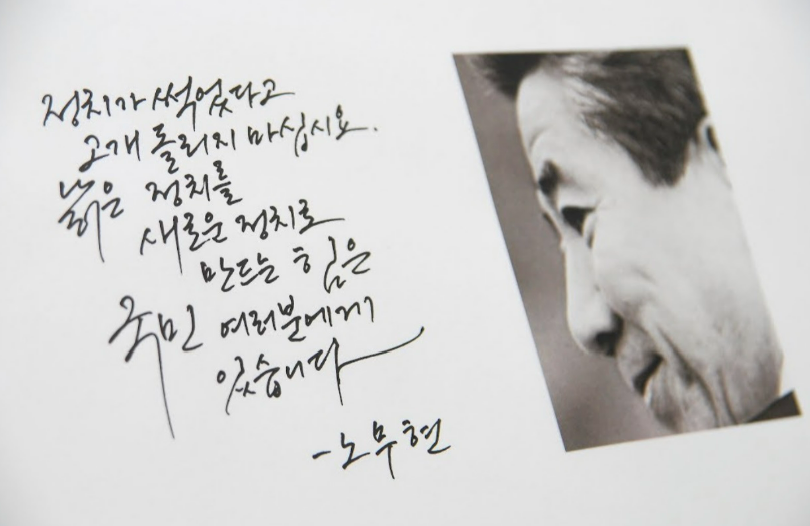 정치가 썩었다고
고개 돌리지 마십시요.
낡은 정치를
새로운 정치로
만드는 힘은
국민 여러분에게
있습니다
-노무현